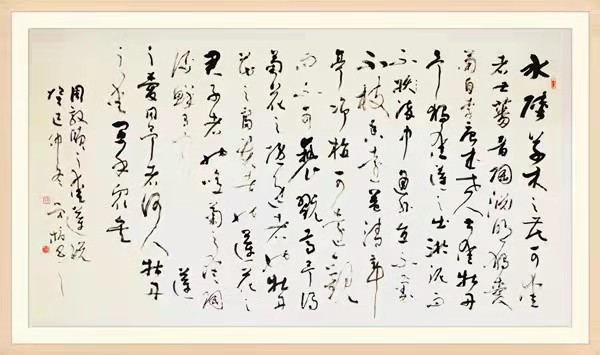 水陸草木之花可愛
者甚蕃晉陶淵明獨愛
菊自李唐來世人甚愛牡丹
予獨愛蓮之出淤泥而
不染中通外直不蔓
不枝香遠益清亭
亭净植可遠觀
而不可褻玩焉予謂
菊花之隱逸者也牡丹
花之富貴者也蓮花之
君子者也噫菊之愛陶
後鮮有聞蓮
之愛同予者何人牡丹
之愛宜乎眾矣
周敦頤之愛蓮說
癸巳仲冬